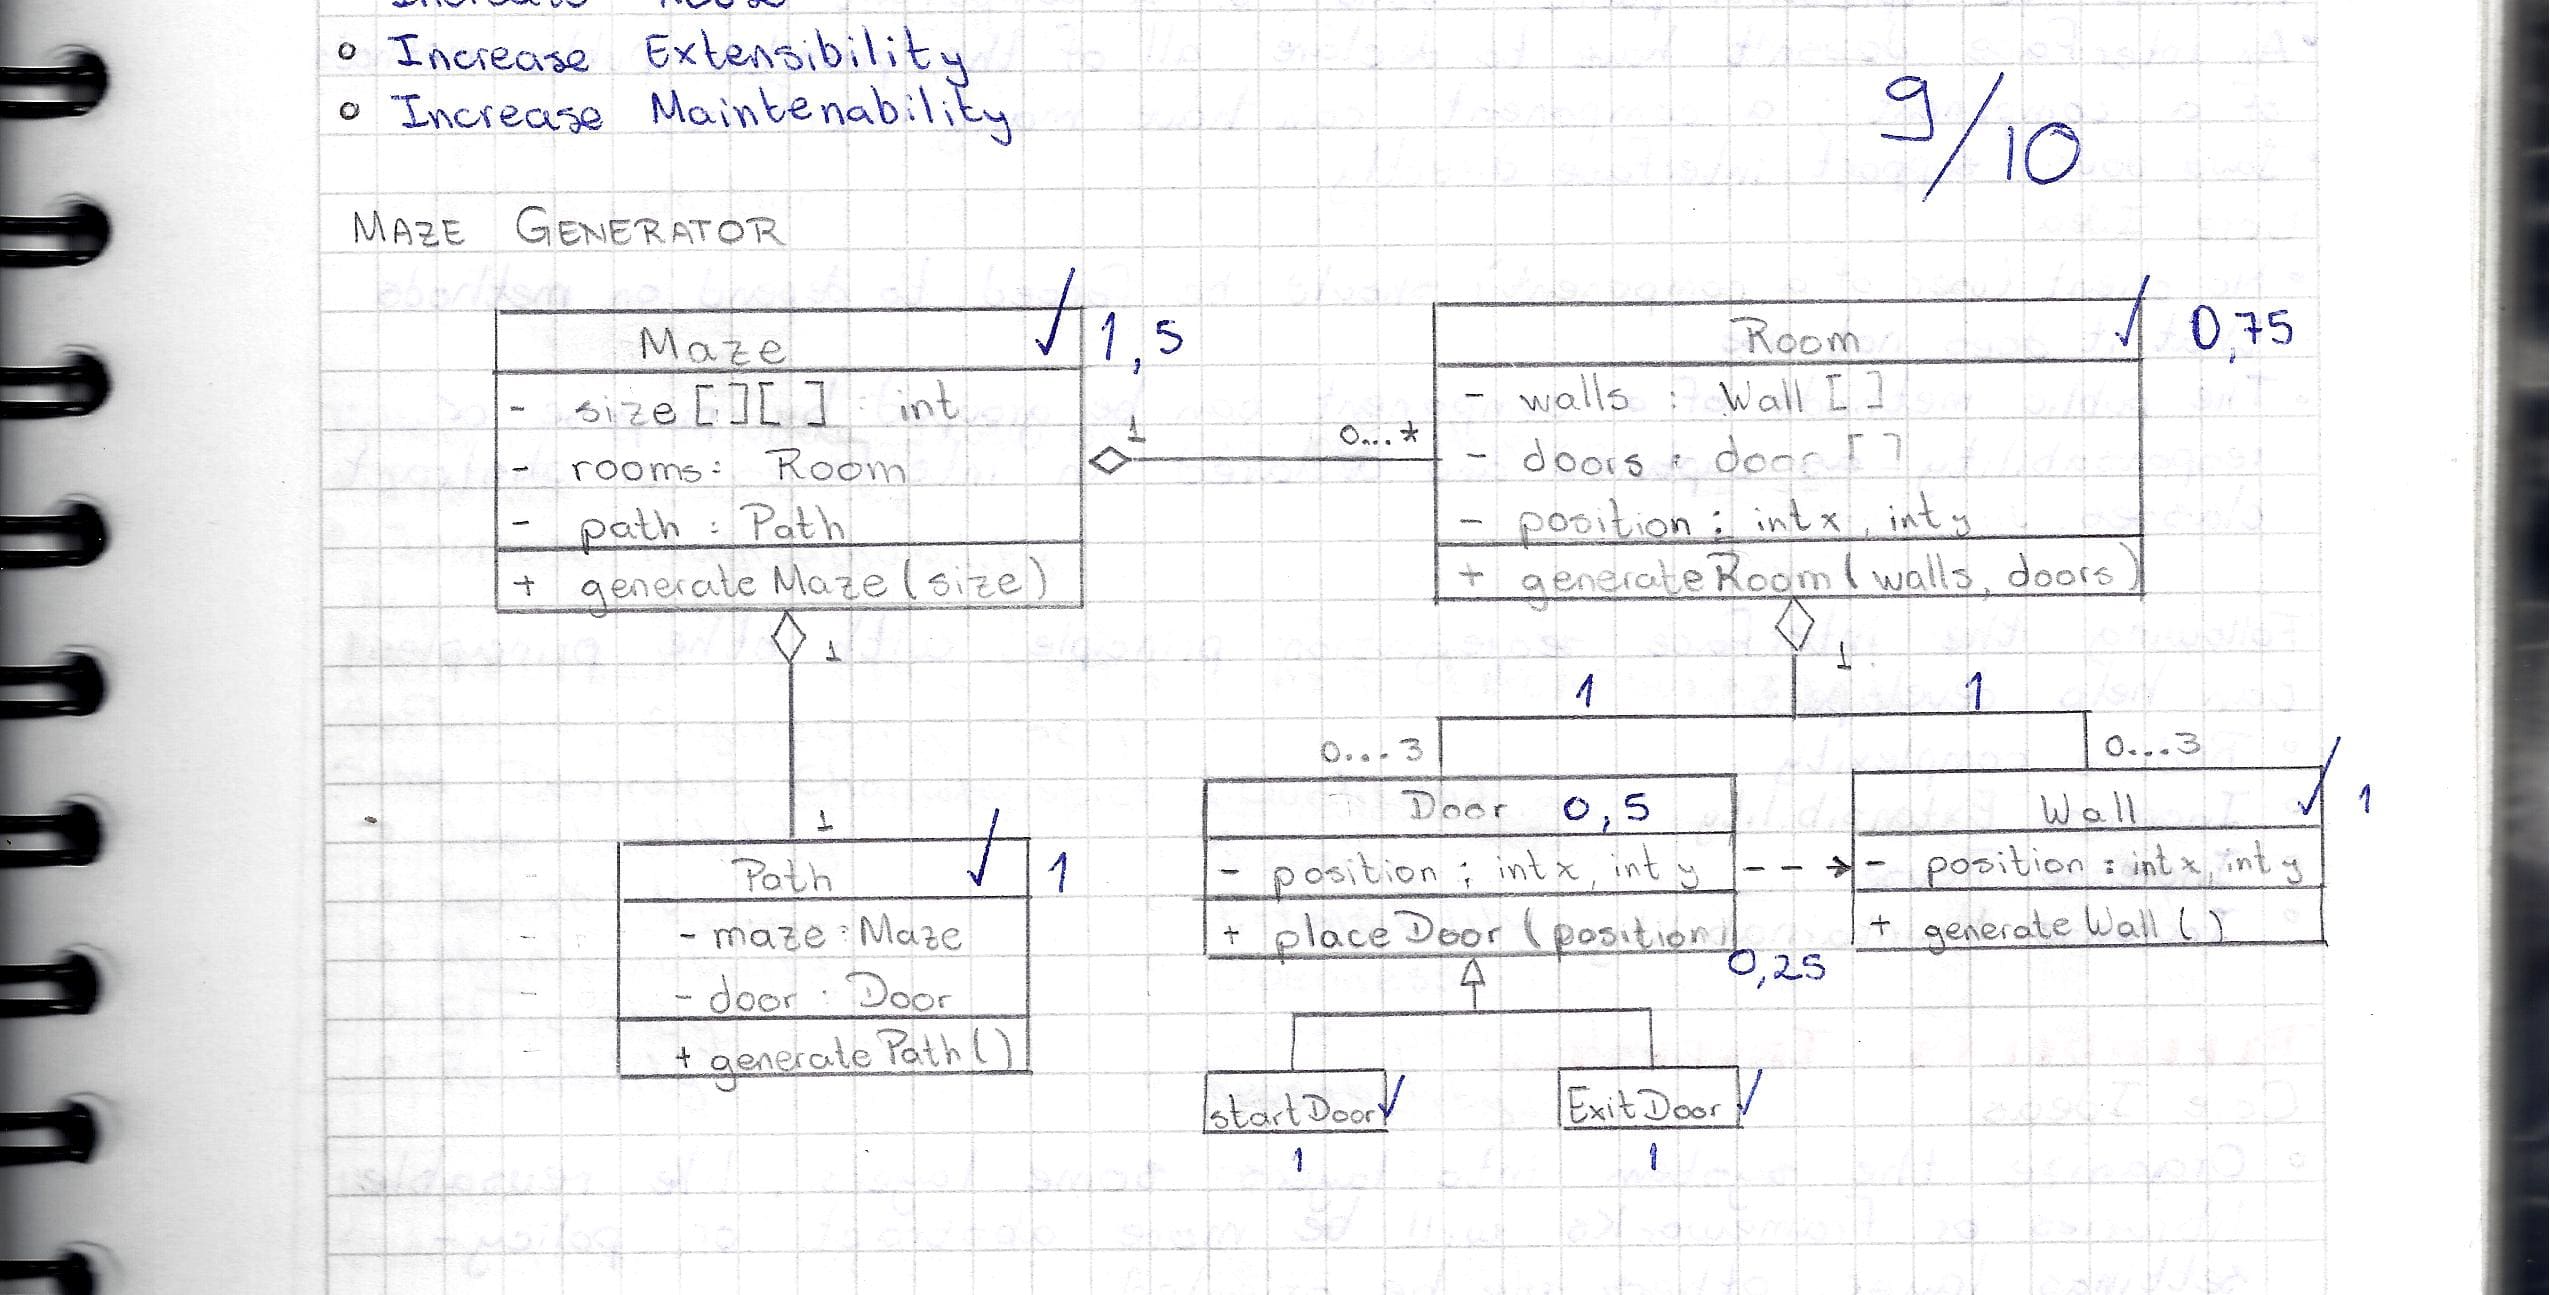 o Increase Extensibility
o Increase Maintenability
9/10
MAZE GENERATOR
Maze
1,5
- size[][] : int
- rooms: Room
- path : Path
+ generateMaze(size)
1
0...*
Room
0,75
- walls : Wall[]
- doors : door[]
- position : int x, int y
+ generateRoom(walls, doors)
1
1
1
1
1
0...3
0...3
Path
1
- maze : Maze
- door : Door
+ generatePath()
Door 0,5
- position : int x, int y
+ placeDoor(position)
0,25
Wall
1
- position : int x, int y
+ generateWall()
startDoor
1
ExitDoor
1